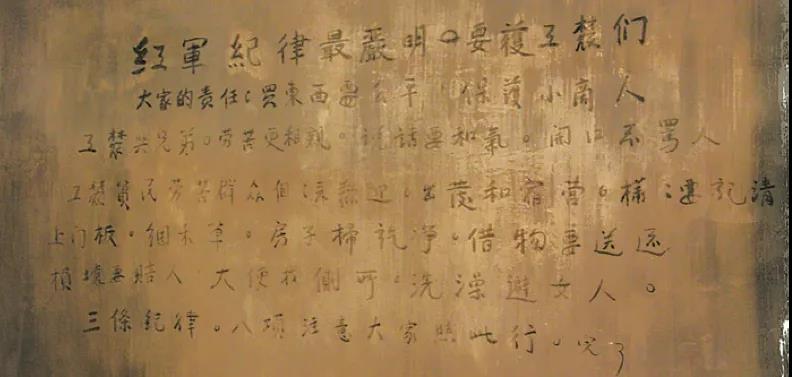 红軍紀律最嚴明。要護工農们
大家的责任：買東西要公平。保護小商人
工農兴兄弟。劳苦更相親。説話要和氣。開口不罵人
工農貧民劳苦群众個 出發和宿营。樣：要記清
上门板。細禾草。房子掃乾净。借物要送还
損壞要賠人 大便找側所。洗澡避女人。
三條紀律。八項注意大家照此行。完了